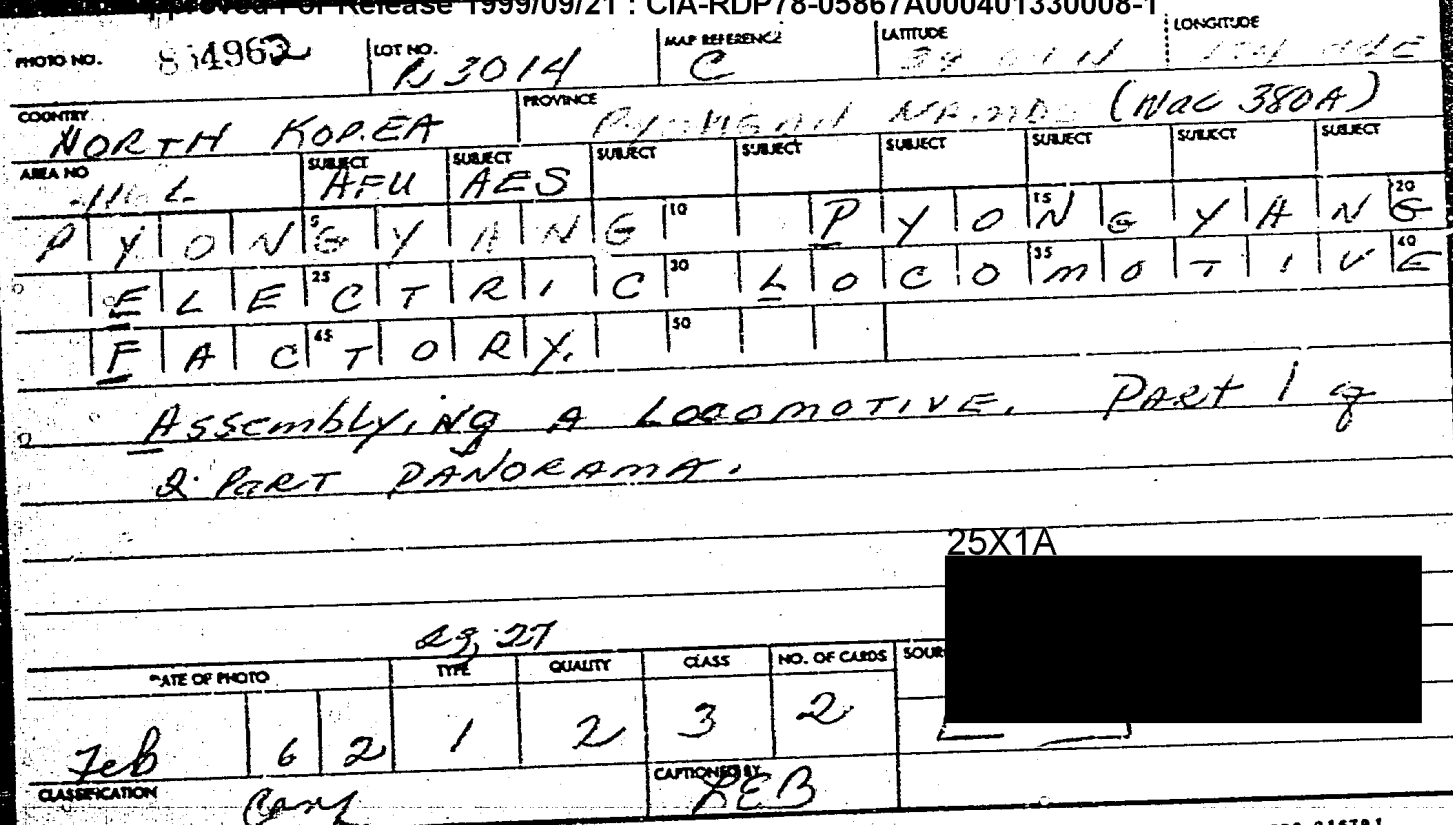 Approved For Release 1999/09/21 : CIA-RDP78-05867A000401330008-1
PHOTO NO. LOT NO. R3014 MAP REFERENCE C LATITUDE LONGITUDE
COUNTRY NORTH KOREA PROVINCE (Nac 380A)
AREA NO SUBJECT AFU SUBJECT AES SUBJECT SUBJECT SUBJECT SUBJECT SUBJECT SUBJECT
PYONGYANG PYONGYANG
ELECTRIC LOCOMOTIVE
FACTORY.
Assembly,iNg A LocomoTIVE. PART 1 of
2 PaRT PANORAMA.
25X1A
23, 27
DATE OF PHOTO TYPE QUALITY CLASS NO. OF CARDS SOUR
Feb 6 2 1 2 3 2
CLASSIFICATION Conf CAPTIONED BY LEB